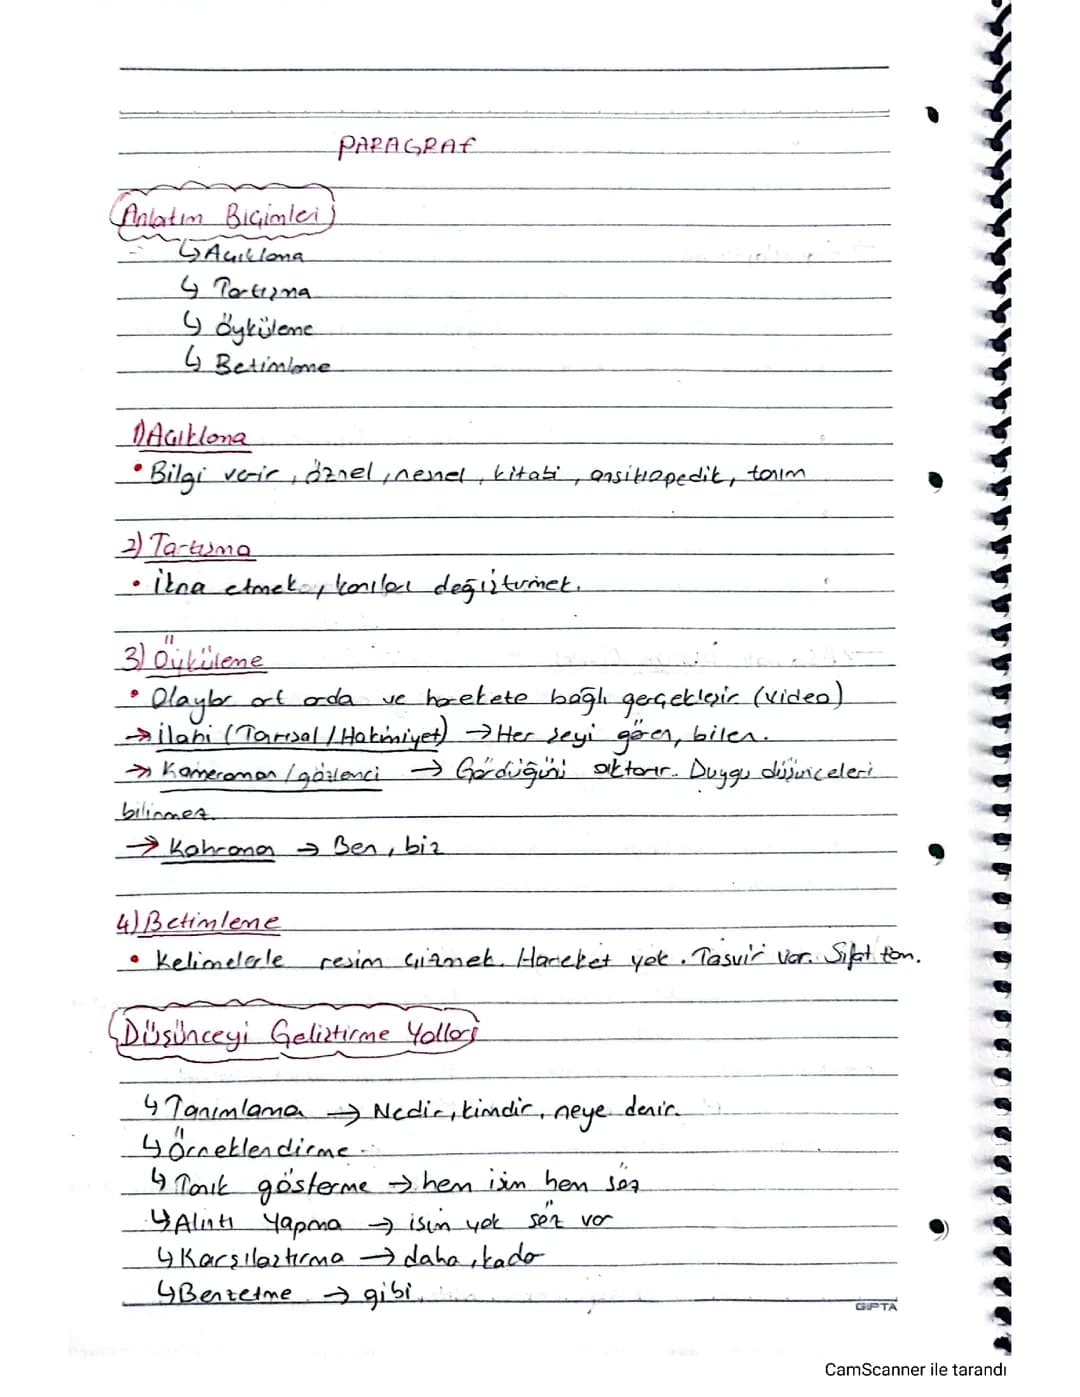 PARAGRAF
Anlatım Biçimleri
↳ Açıklama
↳ Tartışma
↳ Öyküleme
↳ Betimleme
1) Açıklama
• Bilgi verir, öznel, nesnel, kitabi, ansiklopedik, tanım
2) Tartışma
• İkna etmek, kanıları değiştirmek.
3) Öyküleme
• Olaylar art arda ve harekete bağlı gerçekleşir (video)
→ İlahi (Tanrısal / Hakimiyet) → Her şeyi gören, bilen.
→ Kameraman / gözlemci → Gördüğünü aktarır. Duygu düşünceleri
bilinmez.
→ Kahraman → Ben, biz
4) Betimleme
• Kelimelerle resim çizmek. Hareket yok. Tasvir var. Sıfat tam.
Düşünceyi Geliştirme Yolları
↳ Tanımlama → Nedir, kimdir, neye denir.
↳ Örneklendirme
↳ Tanık gösterme → hem isim hem söz
↳ Alıntı Yapma → isim yok söz var
↳ Karşılaştırma → daha, kadar
↳ Benzetme → gibi
GIPTA
CamScanner ile tarandı